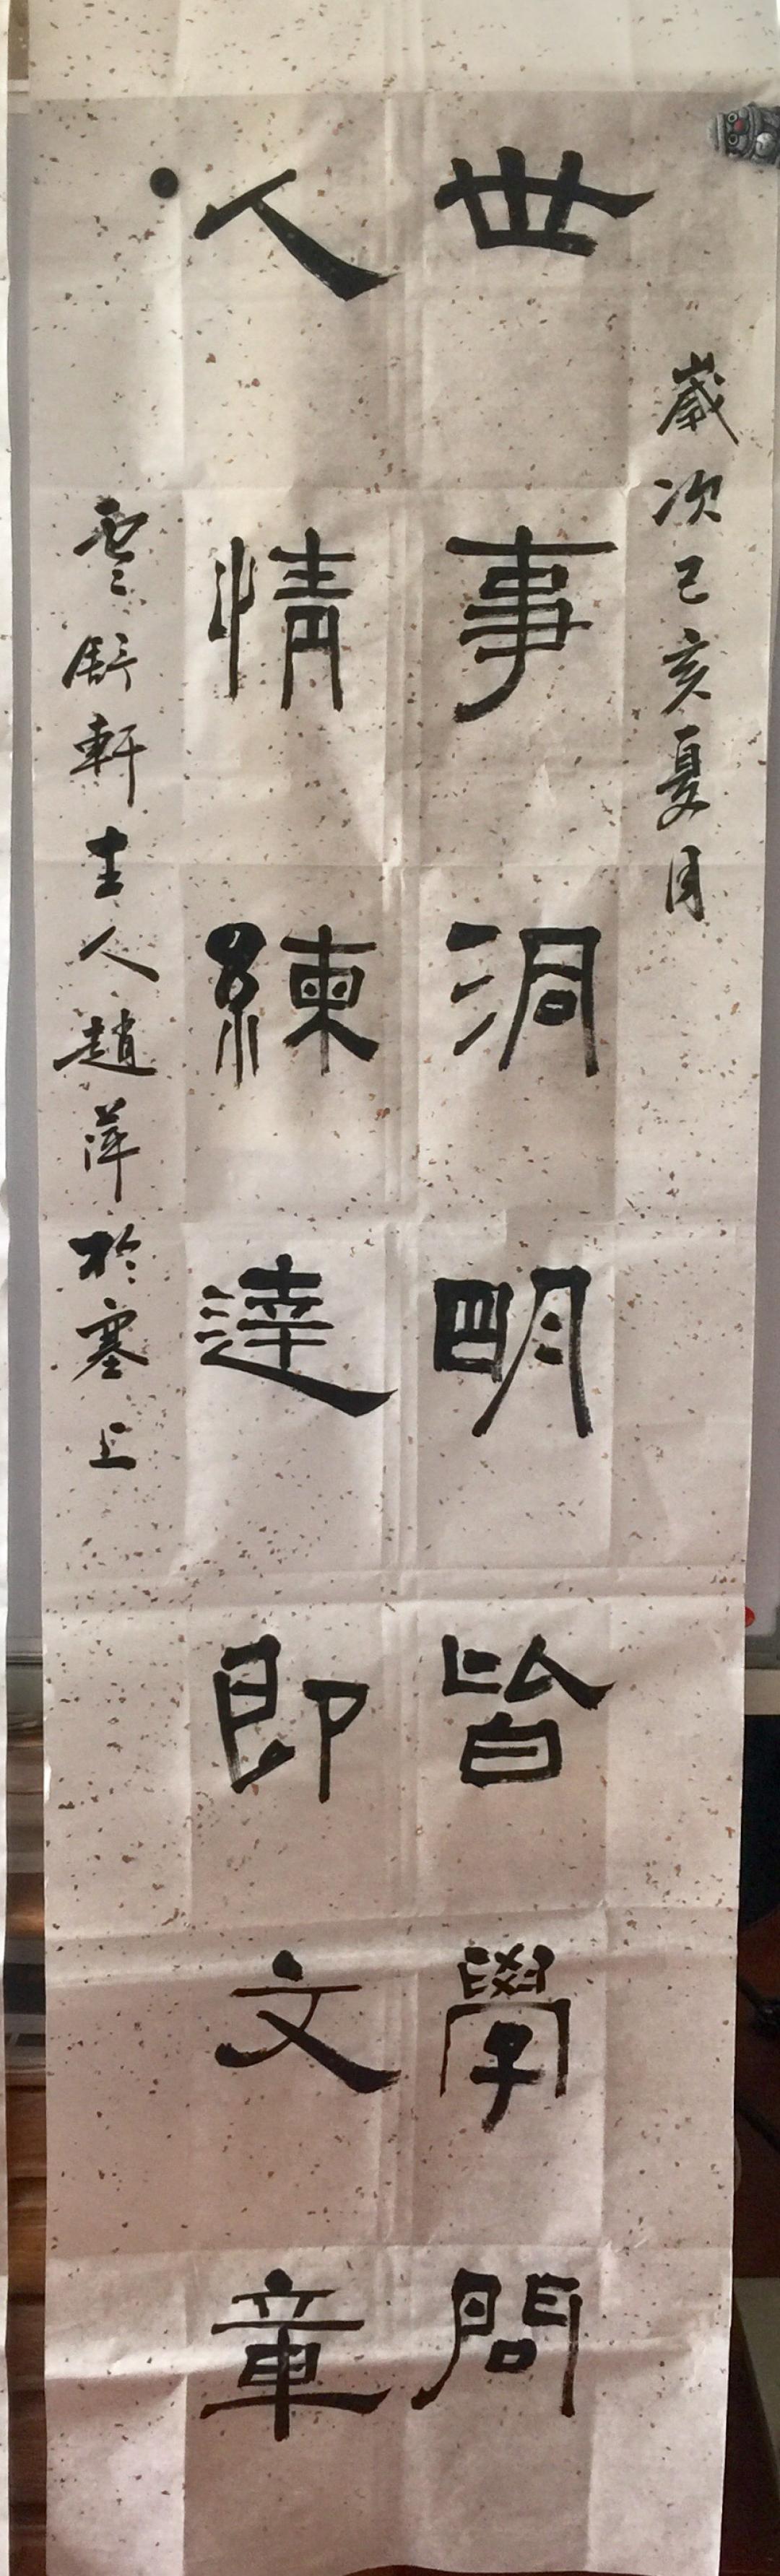 歲次己亥夏月
世事洞明皆學問
人情練達即文章
雲舒軒主人趙萍於塞上